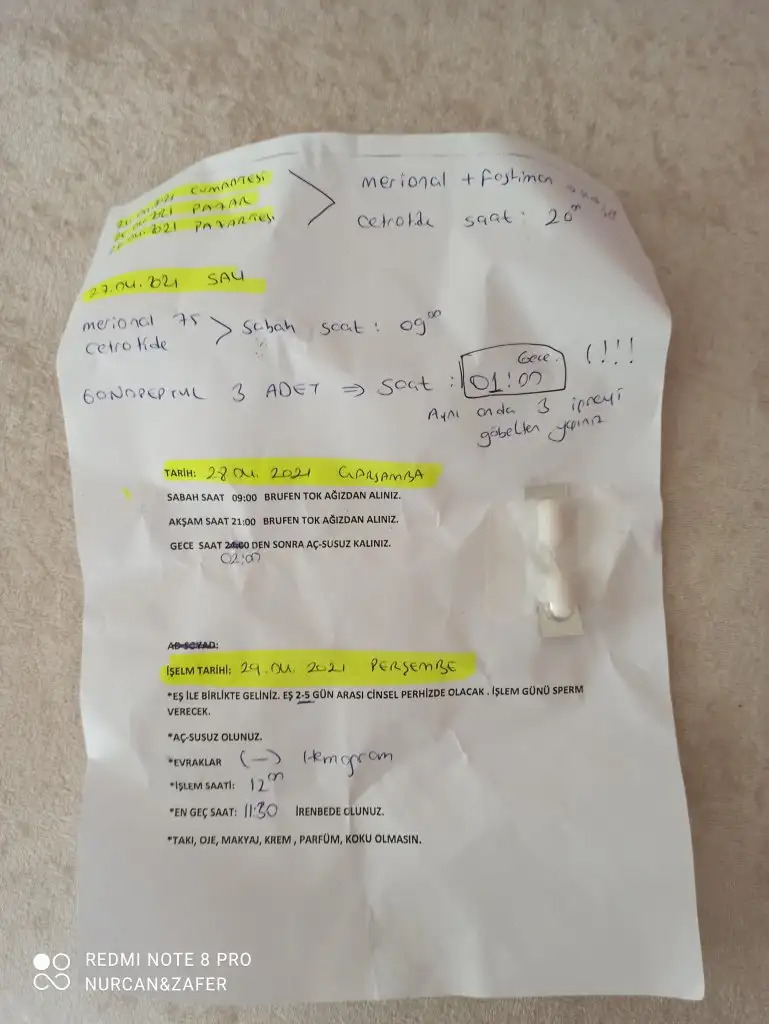 2021 CUMARTESİ
2021 PAZAR
2021 PAZARTESİ
merional + fostimon
cetrotide saat: 20⁰⁰
27.04.2021 SALI
merional 75
cetrotide
> sabah saat: 09⁰⁰
GONAPEPTYL 3 ADET ⇒ saat : Gece. 01:00 (!!!
Aynı anda 3 iğneyi
göbekten yapınız
TARİH: 28.04.2021 ÇARŞAMBA
SABAH SAAT 09:00 BRUFEN TOK AĞIZDAN ALINIZ.
AKŞAM SAAT 21:00 BRUFEN TOK AĞIZDAN ALINIZ.
GECE SAAT 24:00 DEN SONRA AÇ-SUSUZ KALINIZ.
02:00
AD-SOYAD:
İŞELM TARİHİ: 29.04.2021 PERŞEMBE
*EŞ İLE BİRLİKTE GELİNİZ. EŞ 2-5 GÜN ARASI CİNSEL PERHİZDE OLACAK . İŞLEM GÜNÜ SPERM
VERECEK.
*AÇ-SUSUZ OLUNUZ.
*EVRAKLAR (—) Hemogram
*İŞLEM SAATİ: 12⁰⁰
*EN GEÇ SAAT: 11:30 İRENBEDE OLUNUZ.
*TAKI, OJE, MAKYAJ, KREM , PARFÜM, KOKU OLMASIN.
REDMI NOTE 8 PRO
NURCAN&ZAFER